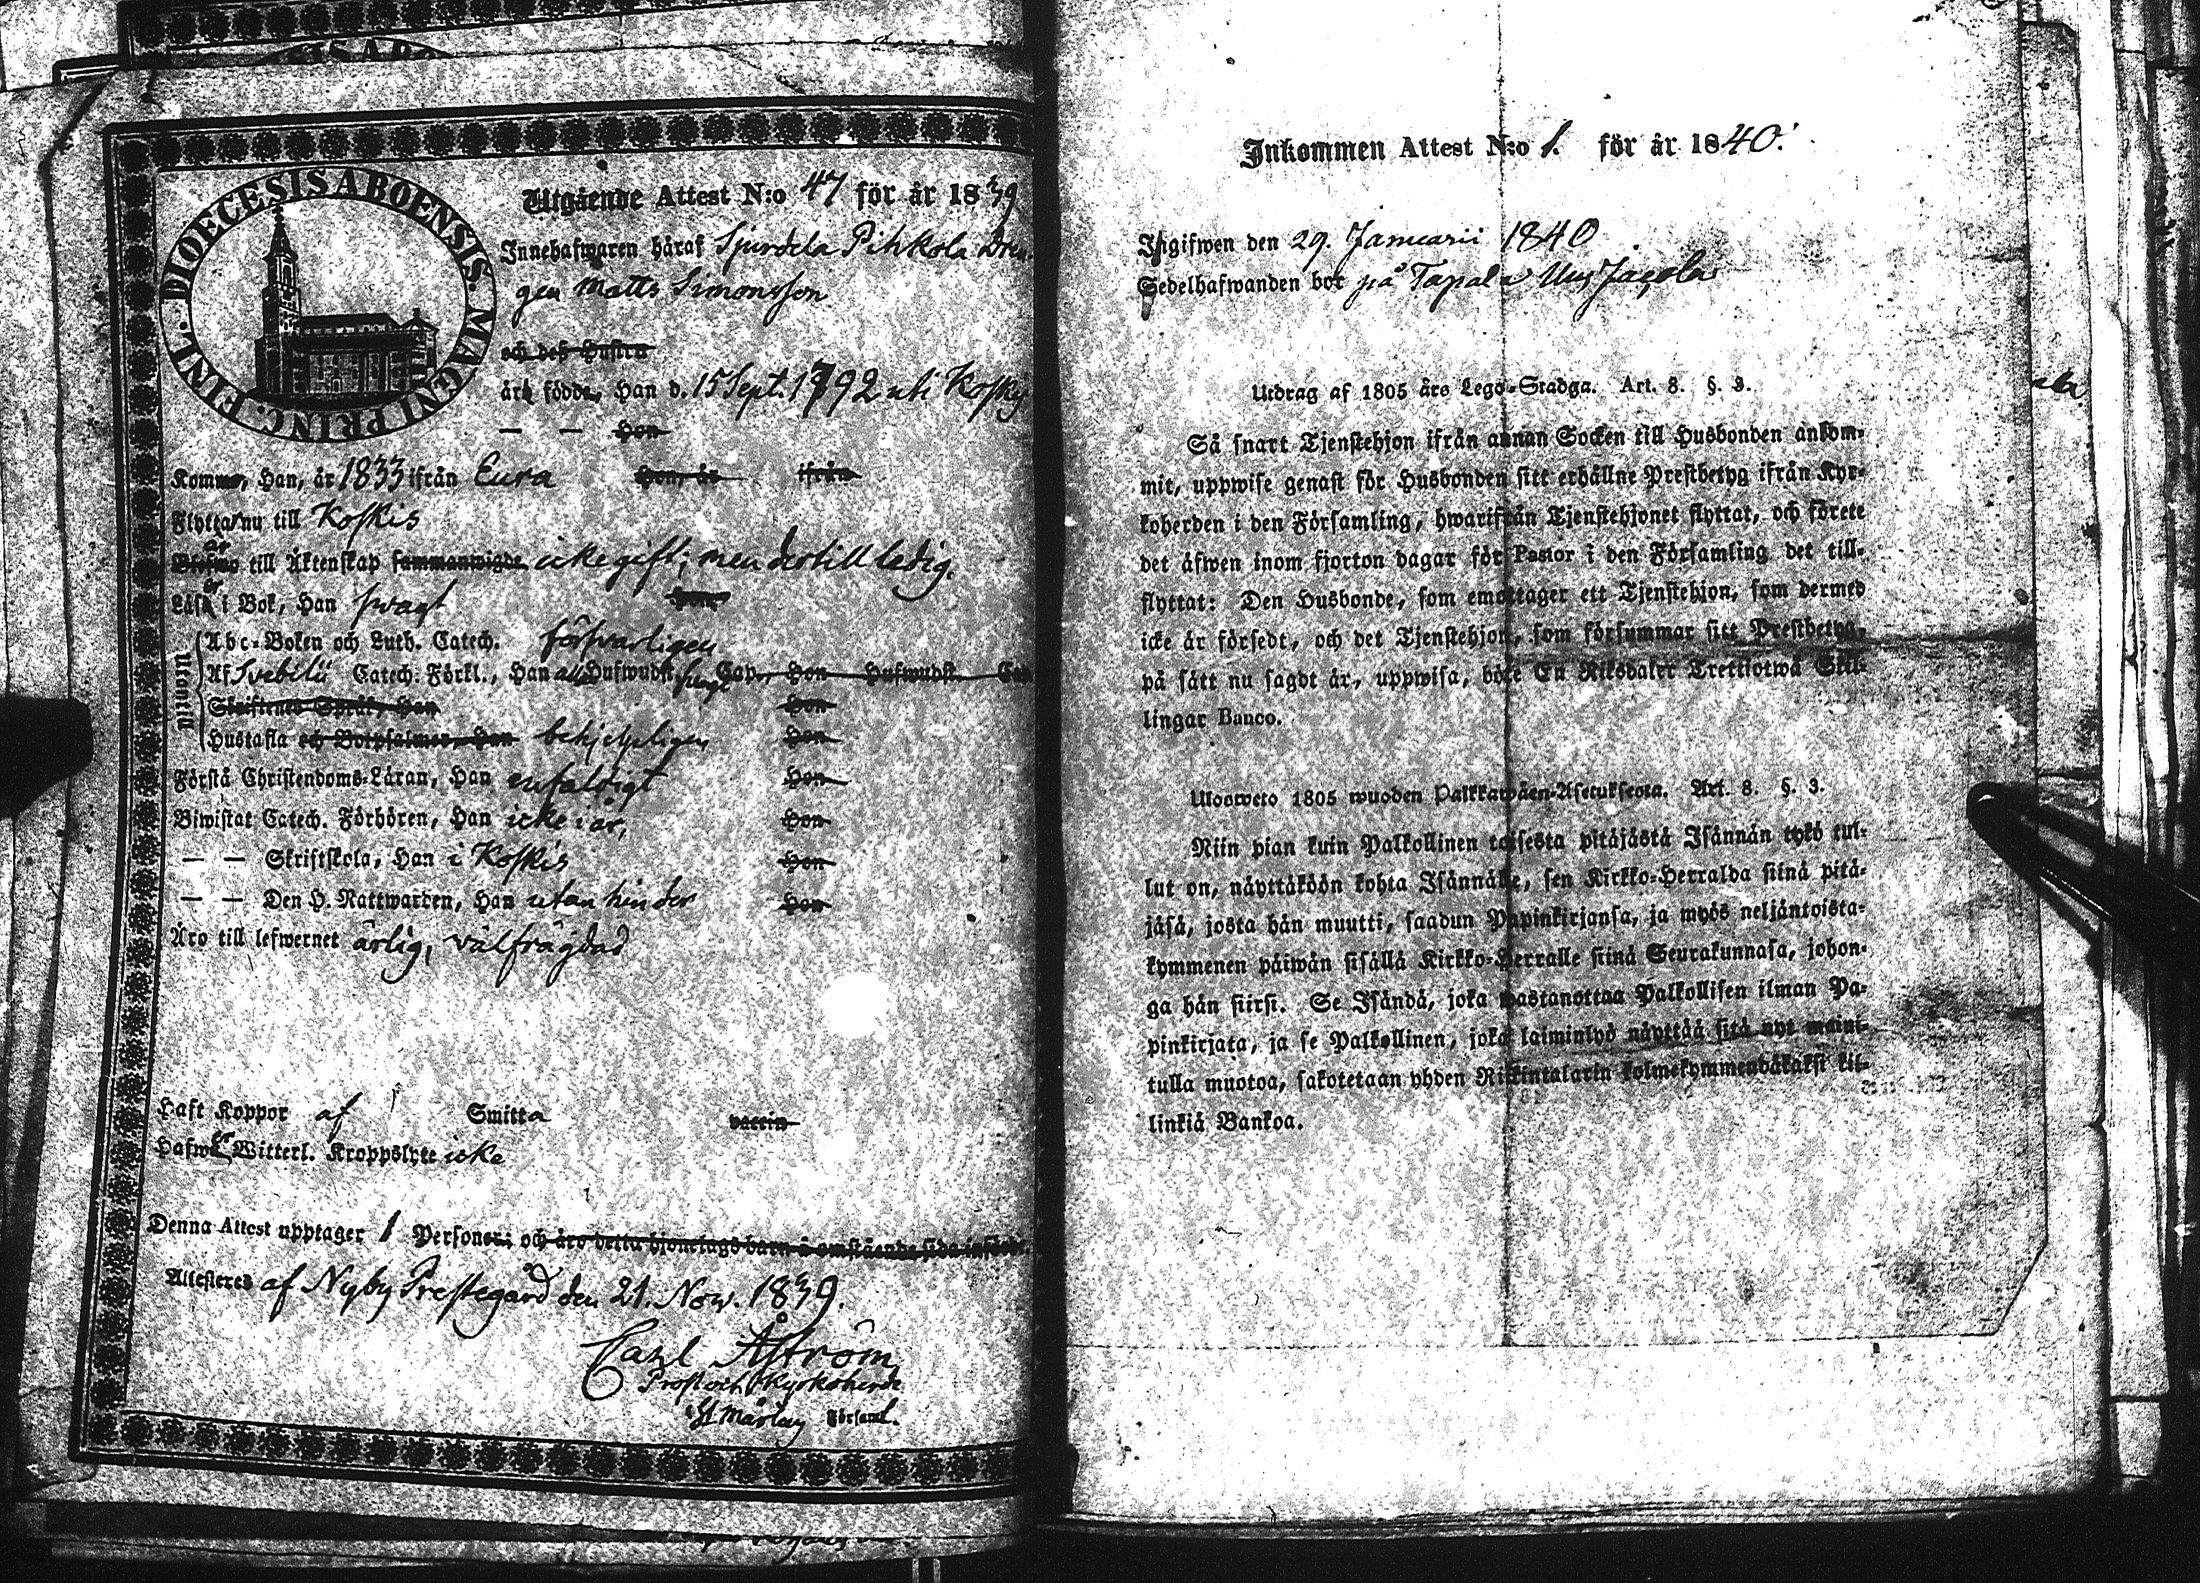 DIOECESIS ABOENSIS. MAGNI PRINC. FINL.
Utgående Attest N:o 47 för år 1839
Innehafwaren håraf Sjurdela Pihkola Dren
gen Matts Simonsson
och deß Hustru
äro födde, Han d. 15 Sept. 1792 uti Koskis
— — Hon
Kommo, Han, år 1833 ifrån Eura Hon, år ifrån
Flytta nu till Koskis
är
till Äktenskap sammanwigde icke gift; men dertill ledig.
är
Läsa i Bok, Han swagt Hon
Utantill
Abc-Boken och Luth. Catech. försvarligen
Af Svebilii Catech. Förkl., Han alla Hufwudst. Cap., Hon Hufwudst. Cap
Skriftenes Språk, Han Hon
Hustafla och Botpsalmer, Han behjelpligen Hon
Förstå Christendoms-Läran, Han enfaldigt Hon
Biwistat Catech. Förhören, Han icke i år, Hon
— — Skriftskola, Han i Koskis Hon
— — Den H. Nattwarden, Han utan hinder Hon
Äro till lefwernet ärlig, välfrägdad
Haft Koppor af Smitta vaccin
är
Hafwa Witterl. Kroppslyte icke
Denna Attest upptager 1 Personer; och äro detta hjonelags barn å omstående sida införde
Attesteres af Nyby Prestegård den 21. Nov. 1839.
Carl Åström,
Prost och Kyrkoherde
i St Mårtens Församl.
Inkommen Attest N:o 1. för år 1840.
Ingifwen den 29. Januarii 1840
Sedelhafwanden bor på Tapala Uus Jaçola
Utdrag af 1805 års Lego-Stadga. Art. 8. §. 3.
Så snart Tjenstehjon ifrån annan Socken till Husbonden ankom-
mit, uppwise genast för Husbonden sitt erhållne Prestbetyg ifrån Kyr-
koherden i den Församling, hwarifrån Tjenstehjonet flyttat, och förete
det äfwen inom fjorton dagar för Pastor i den Församling det till-
flyttat: Den Husbonde, som emottager ett Tjenstehjon, som dermed
icke är försedt, och det Tjenstehjon, som försummar sitt Prestbetyg,
på sätt nu sagdt är, uppwisa, böte En Riksdaler Trettiotwå Skil-
lingar Banco.
Uloosweto 1805 wuoden Palkkawäen-Asetuksesta. Art. 8. §. 3.
Niin pian kuin Palkollinen toisesta pitäjästä Isännän tykö tul-
lut on, näyttäköön kohta Isännälle, sen Kirkko-Herralda siinä pitä-
jäsä, josta hän muutti, saadun Papinkirjansa, ja myös neljäntoista-
kymmenen päiwän sisällä Kirkko-Herralle siinä Seurakunnasa, johon-
ga hän siirsi. Se Isändä, joka wastanottaa Palkollisen ilman Pa-
pinkirjata, ja se Palkollinen, joka laiminlyö näyttää sitä nyt maini-
tulla muotoa, sakotetaan yhden Riikintalarin kolmekymmendäkaksi kil-
linkiä Bankoa.